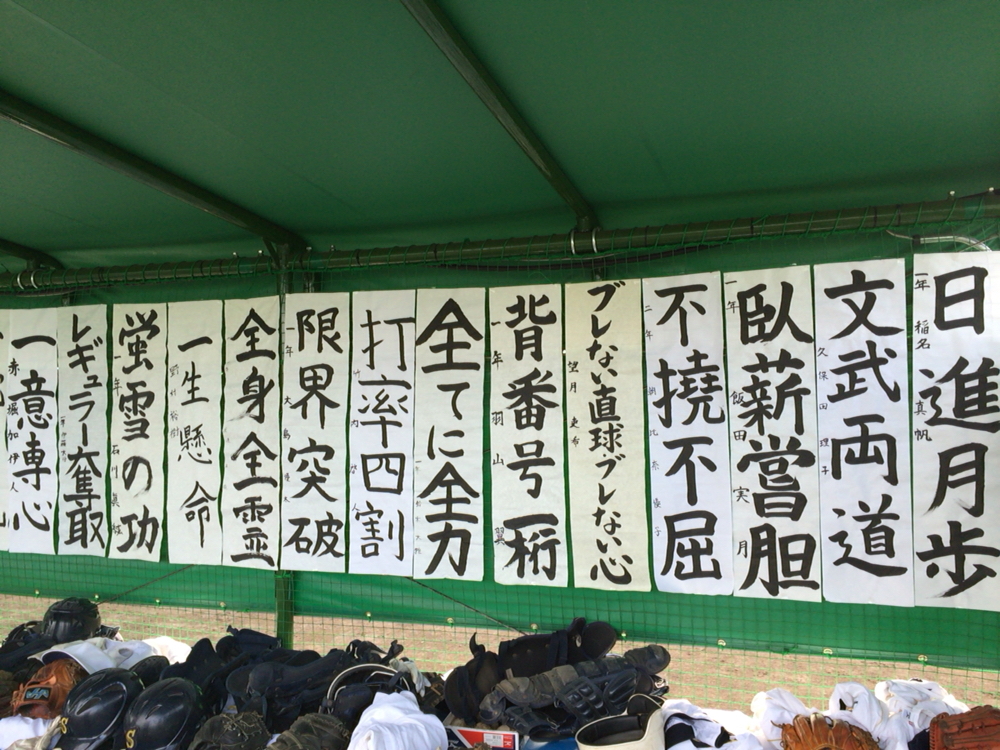 日進月歩
一年 稲名 真帆
文武両道
久保田 理子
臥薪嘗胆
一年 飯田 実月
不撓不屈
二年
ブレない直球ブレない心
望月
背番号一桁
一年 羽山 翼
全てに全力
打率四割
限界突破
一年 大島
全身全霊
一生懸命
蛍雪の功
一年 石川
レギュラー奪取
一意専心
赤堀 加伊人
S
S